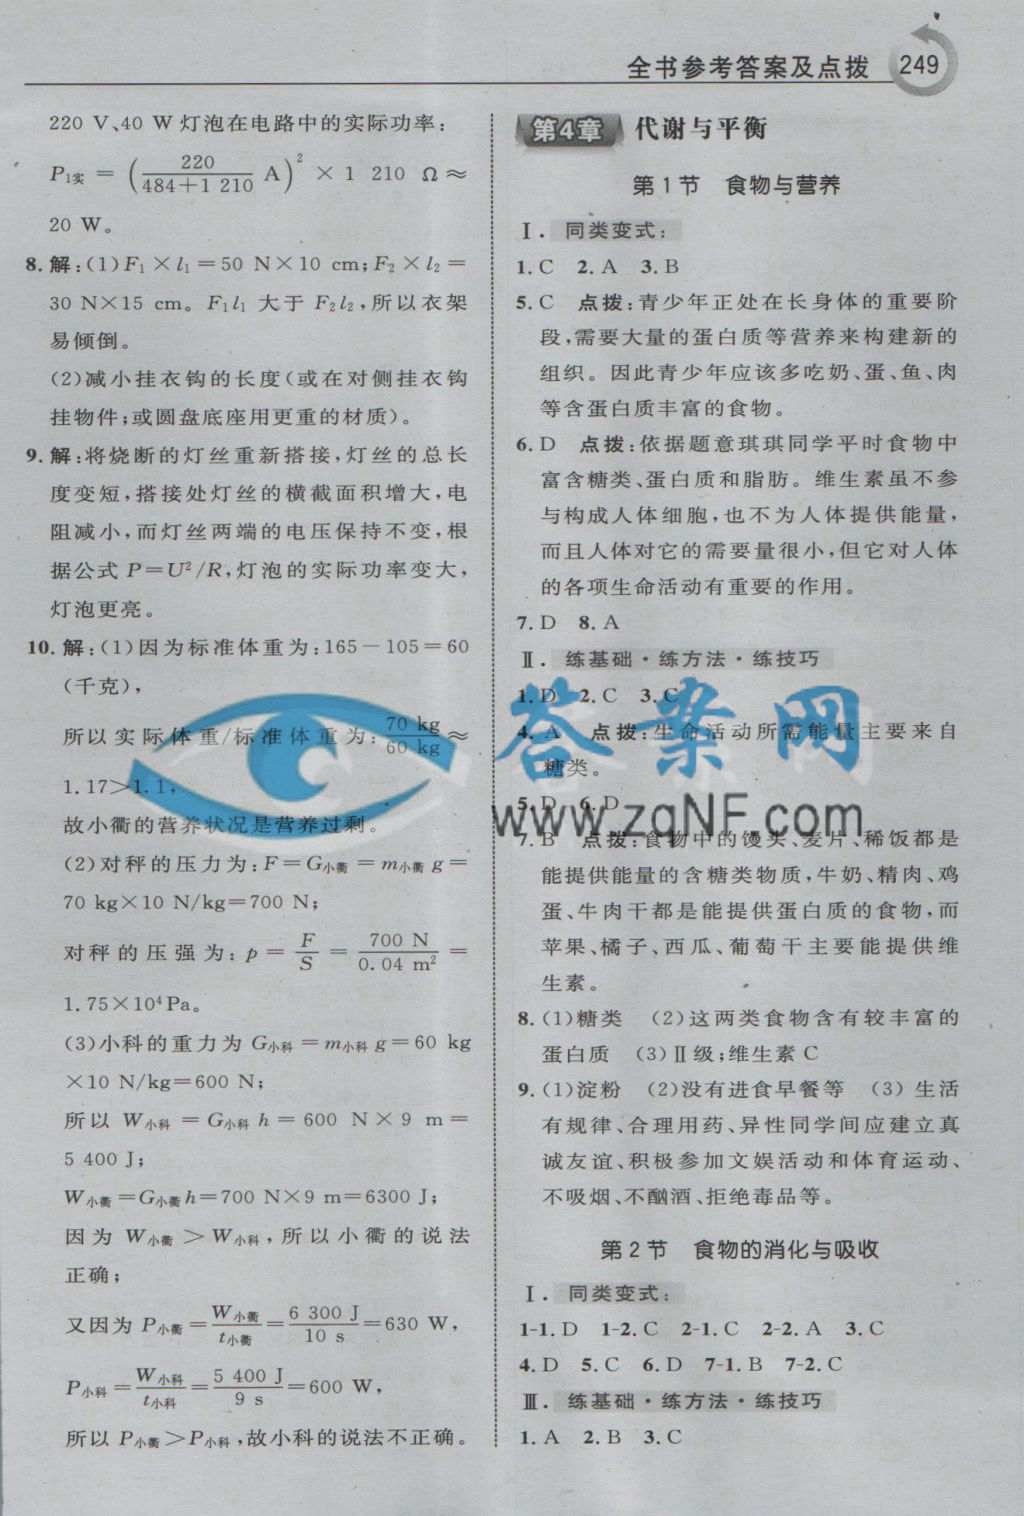 全书参考答案及点拨 249
220 V、40 W 灯泡在电路中的实际功率:
P1实 = (220/(484+1 210) A)² × 1 210 Ω ≈
20 W。
8. 解:(1)F₁×l₁=50 N×10 cm;F₂×l₂=
30 N×15 cm。F₁l₁ 大于 F₂l₂,所以衣架
易倾倒。
(2)减小挂衣钩的长度(或在对侧挂衣钩
挂物件;或圆盘底座用更重的材质)。
9. 解:将烧断的灯丝重新搭接,灯丝的总长
度变短,搭接处灯丝的横截面积增大,电
阻减小,而灯丝两端的电压保持不变,根
据公式 P=U²/R,灯泡的实际功率变大,
灯泡更亮。
10. 解:(1)因为标准体重为:165-105=60
(千克),
所以实际体重/标准体重为:70 kg/60 kg≈
1.17>1.1,
故小衢的营养状况是营养过剩。
(2)对秤的压力为:F=G小衢=m小衢 g=
70 kg×10 N/kg=700 N;
对秤的压强为:p=F/S=700 N/0.04 m²=
1.75×10⁴Pa。
(3)小科的重力为 G小科=m小科 g=60 kg
×10 N/kg=600 N;
所以 W小科=G小科 h=600 N×9 m=
5 400 J;
W小衢=G小衢h=700 N×9 m=6300 J;
因为 W小衢>W小科,所以小衢的说法
正确;
又因为 P小衢=W小衢/t小衢=6 300 J/10 s=630 W,
P小科=W小科/t小科=5 400 J/9 s=600 W,
所以 P小衢>P小科,故小科的说法不正确。
第4章 代谢与平衡
第 1 节 食物与营养
Ⅰ. 同类变式:
1. C 2. A 3. B
5. C 点拨:青少年正处在长身体的重要阶
段,需要大量的蛋白质等营养来构建新的
组织。因此青少年应该多吃奶、蛋、鱼、肉
等含蛋白质丰富的食物。
6. D 点拨:依据题意琪琪同学平时食物中
富含糖类、蛋白质和脂肪。维生素虽不参
与构成人体细胞,也不为人体提供能量,
而且人体对它的需要量很小,但它对人体
的各项生命活动有重要的作用。
7. D 8. A
Ⅱ. 练基础·练方法·练技巧
1. D 2. C 3. C
4. A 点拨:生命活动所需能量主要来自
糖类。
5. D 6. D
7. B 点拨:食物中的馒头、麦片、稀饭都是
能提供能量的含糖类物质,牛奶、精肉、鸡
蛋、牛肉干都是能提供蛋白质的食物,而
苹果、橘子、西瓜、葡萄干主要能提供维
生素。
8. (1)糖类 (2)这两类食物含有较丰富的
蛋白质 (3)Ⅱ级;维生素 C
9. (1)淀粉 (2)没有进食早餐等 (3) 生活
有规律、合理用药、异性同学间应建立真
诚友谊、积极参加文娱活动和体育运动、
不吸烟、不酗酒、拒绝毒品等。
第 2 节 食物的消化与吸收
Ⅰ. 同类变式:
1-1. D 1-2. C 2-1. C 2-2. A 3. C
4. D 5. C 6. D 7-1. B 7-2. C
Ⅲ. 练基础·练方法·练技巧
1. A 2. B 3. C
答案网
www.zqNF.com